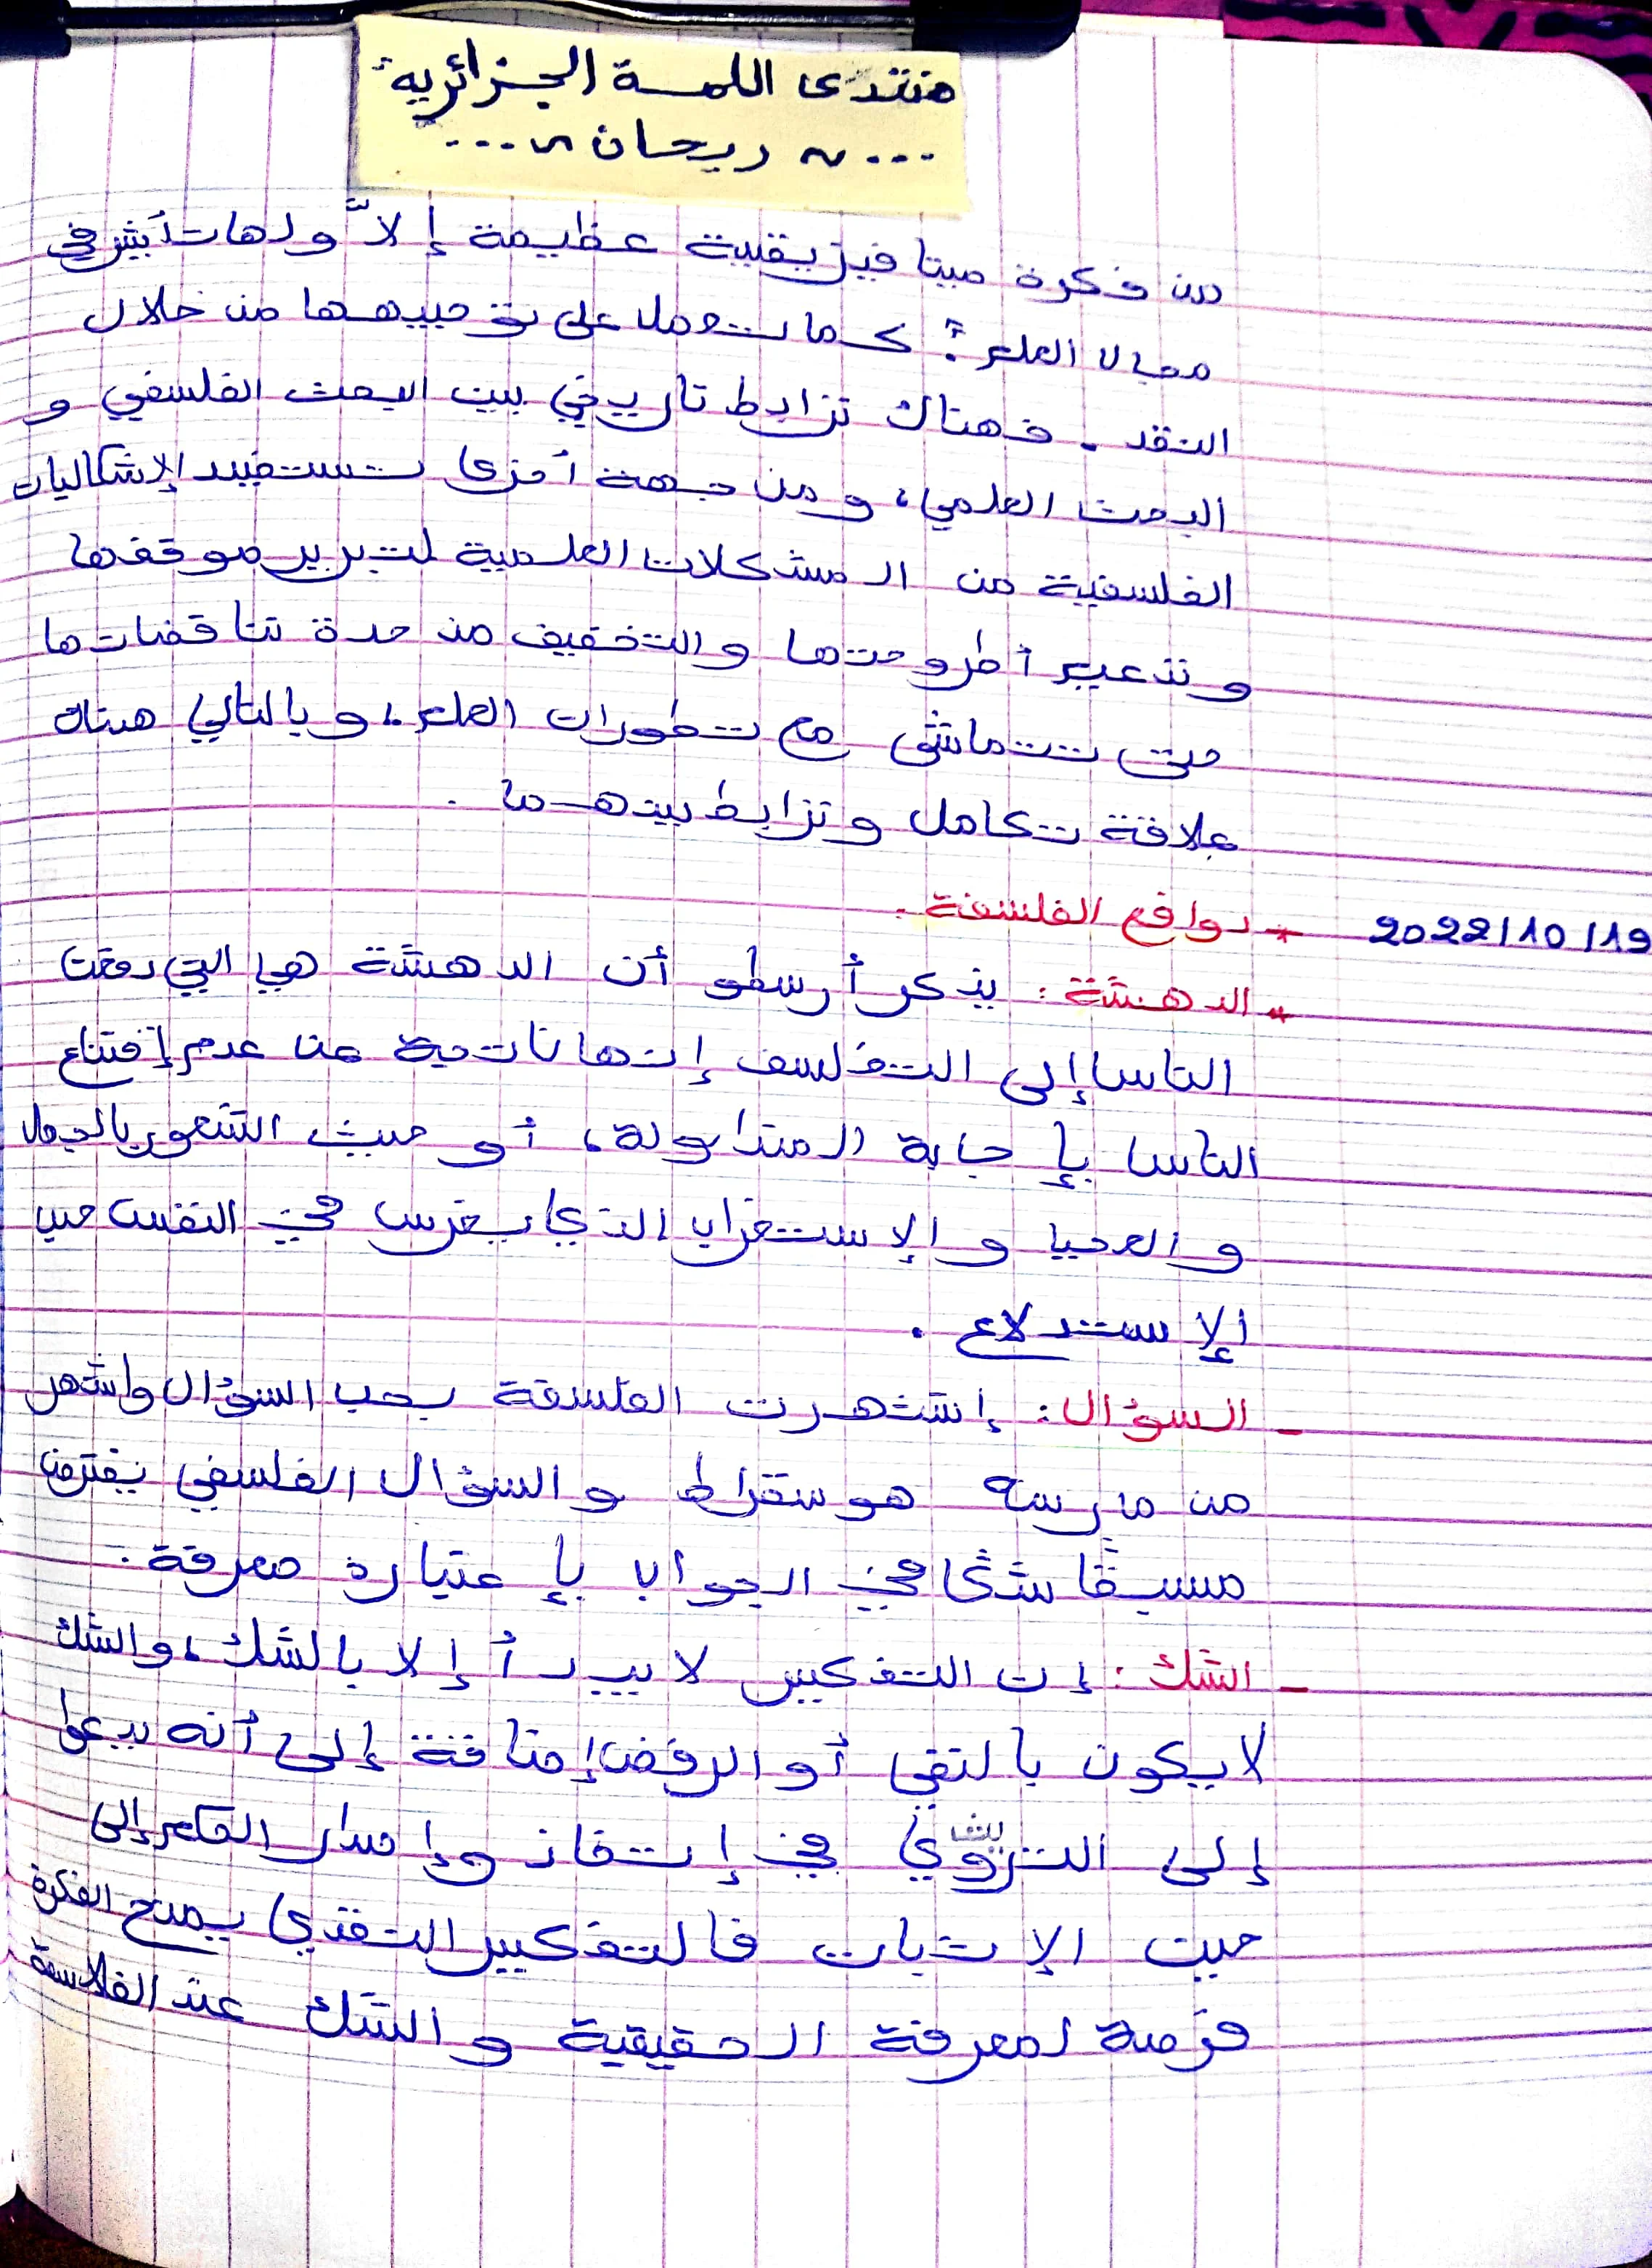 منتدى اللمسة الجزائرية
... ~ ريحان ~ ...
من فكرة ميتا فيزيقية عظيمة إلاّ ولها تأثير في
مجال العلم: كما تعمل على توجيهها من خلال
النقد. فهناك ترابط تاريخي بين البحث الفلسفي و
البحث العلمي، ومن جهة أخرى تستفيد الإشكاليات
الفلسفية من المشكلات العلمية لتبرير موقفها
وتدعيم أطروحتها والتخفيف من حدة تناقضاتها
حتى تتماشى مع تطورات العلم، و بالتالي هناك
علاقة تكامل وترابط بينهما.
2022/10/19 * دوافع الفلسفة.
* الدهشة: يذكر أرسطو أن الدهشة هي التي دفعت
الناس إلى التفلسف إنها ناتجة عن عدم إقتناع
الناس بإجابة المتداولة، أو حيث الشعور بالجهل
و الإستغراب الذي يغرس في النفس حب
الإستدلاع.
- السؤال: إشتهرت الفلسفة بحب السؤال واشهر
من مارسه هو سقراط والسؤال الفلسفي يفترض
مسبقًا شكا في الجواب بإعتباره معرفة.
- الشك: إن التفكير لا يبدأ إلا بالشك، والشك
لا يكون بالنفي أو الرفض إضافة إلى أنه يدعوا
إلى التروي في إتخاذ وإصدار الحكم إلى
حين الإثبات فالتفكير النقدي يمنح الفكرة
فرصة لمعرفة الحقيقية و الشك عند الفلاسفة